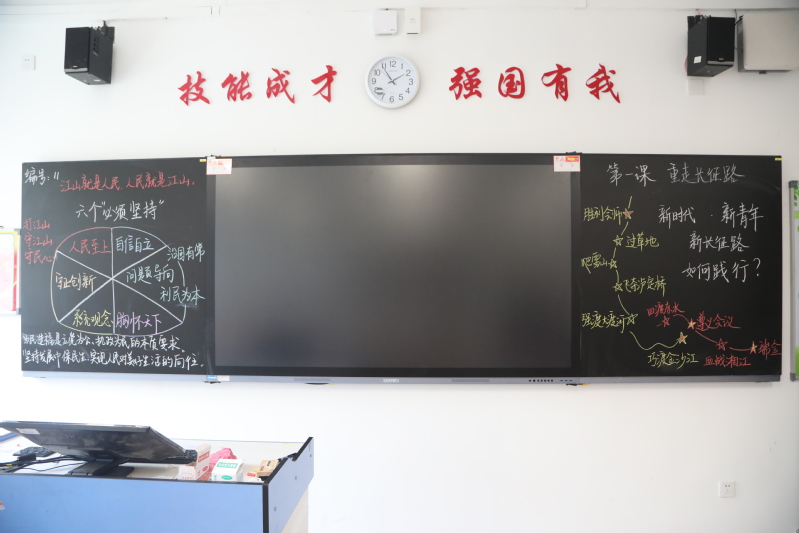 技能成才 强国有我
编号：11
江山就是人民，人民就是江山。
六个“必须坚持”
打江山
守江山
守民心
人民至上
自信自立
守正创新
问题导向
系统观念
胸怀天下
治国有常
利民为本
为民造福是立党为公、执政为民的本质要求。
坚持发展中保民生，实现人民对美好生活的向往。
第一课 重走长征路
新时代·新青年
新长征路
如何践行？
胜利会师
过草地
爬雪山
飞夺泸定桥
强渡大渡河
巧渡金沙江
四渡赤水
遵义会议
血战湘江
瑞金